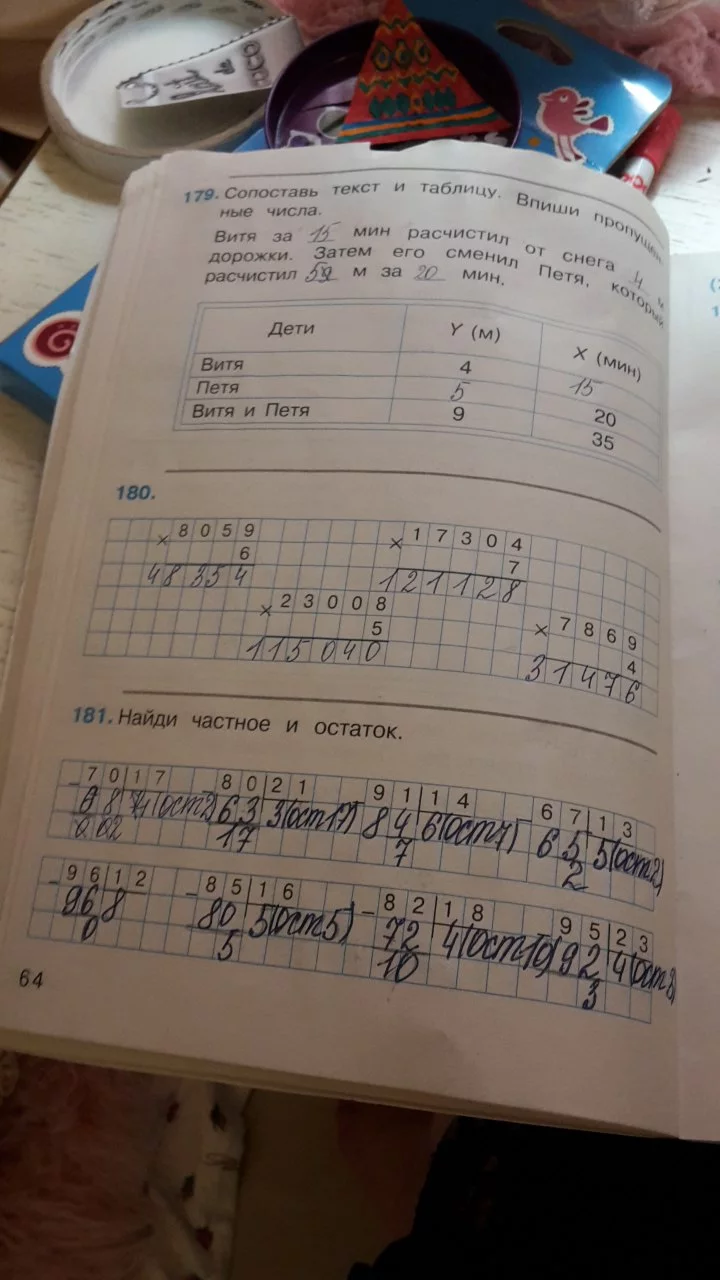 179. Сопоставь текст и таблицу. Впиши пропущен-
ные числа.
Витя за 15 мин расчистил от снега 4 м
дорожки. Затем его сменил Петя, который
расчистил 5 м за 20 мин.
Дети Y (м) X (мин)
Витя 4 15
Петя 5 20
Витя и Петя 9 35
180.
× 8059 × 17304
6 7
48354 121128
× 23008 × 7869
5 4
115040 31476
181. Найди частное и остаток.
70 17 80 21 91 14 67 13
68 4(ост2) 63 3(ост17) 84 6(ост7) 65 5(ост2)
02 17 7 2
96 12 85 16 82 18 95 23
96 8 80 5(ост5) 72 4(ост10) 92 4(ост3)
0 5 10 3
64